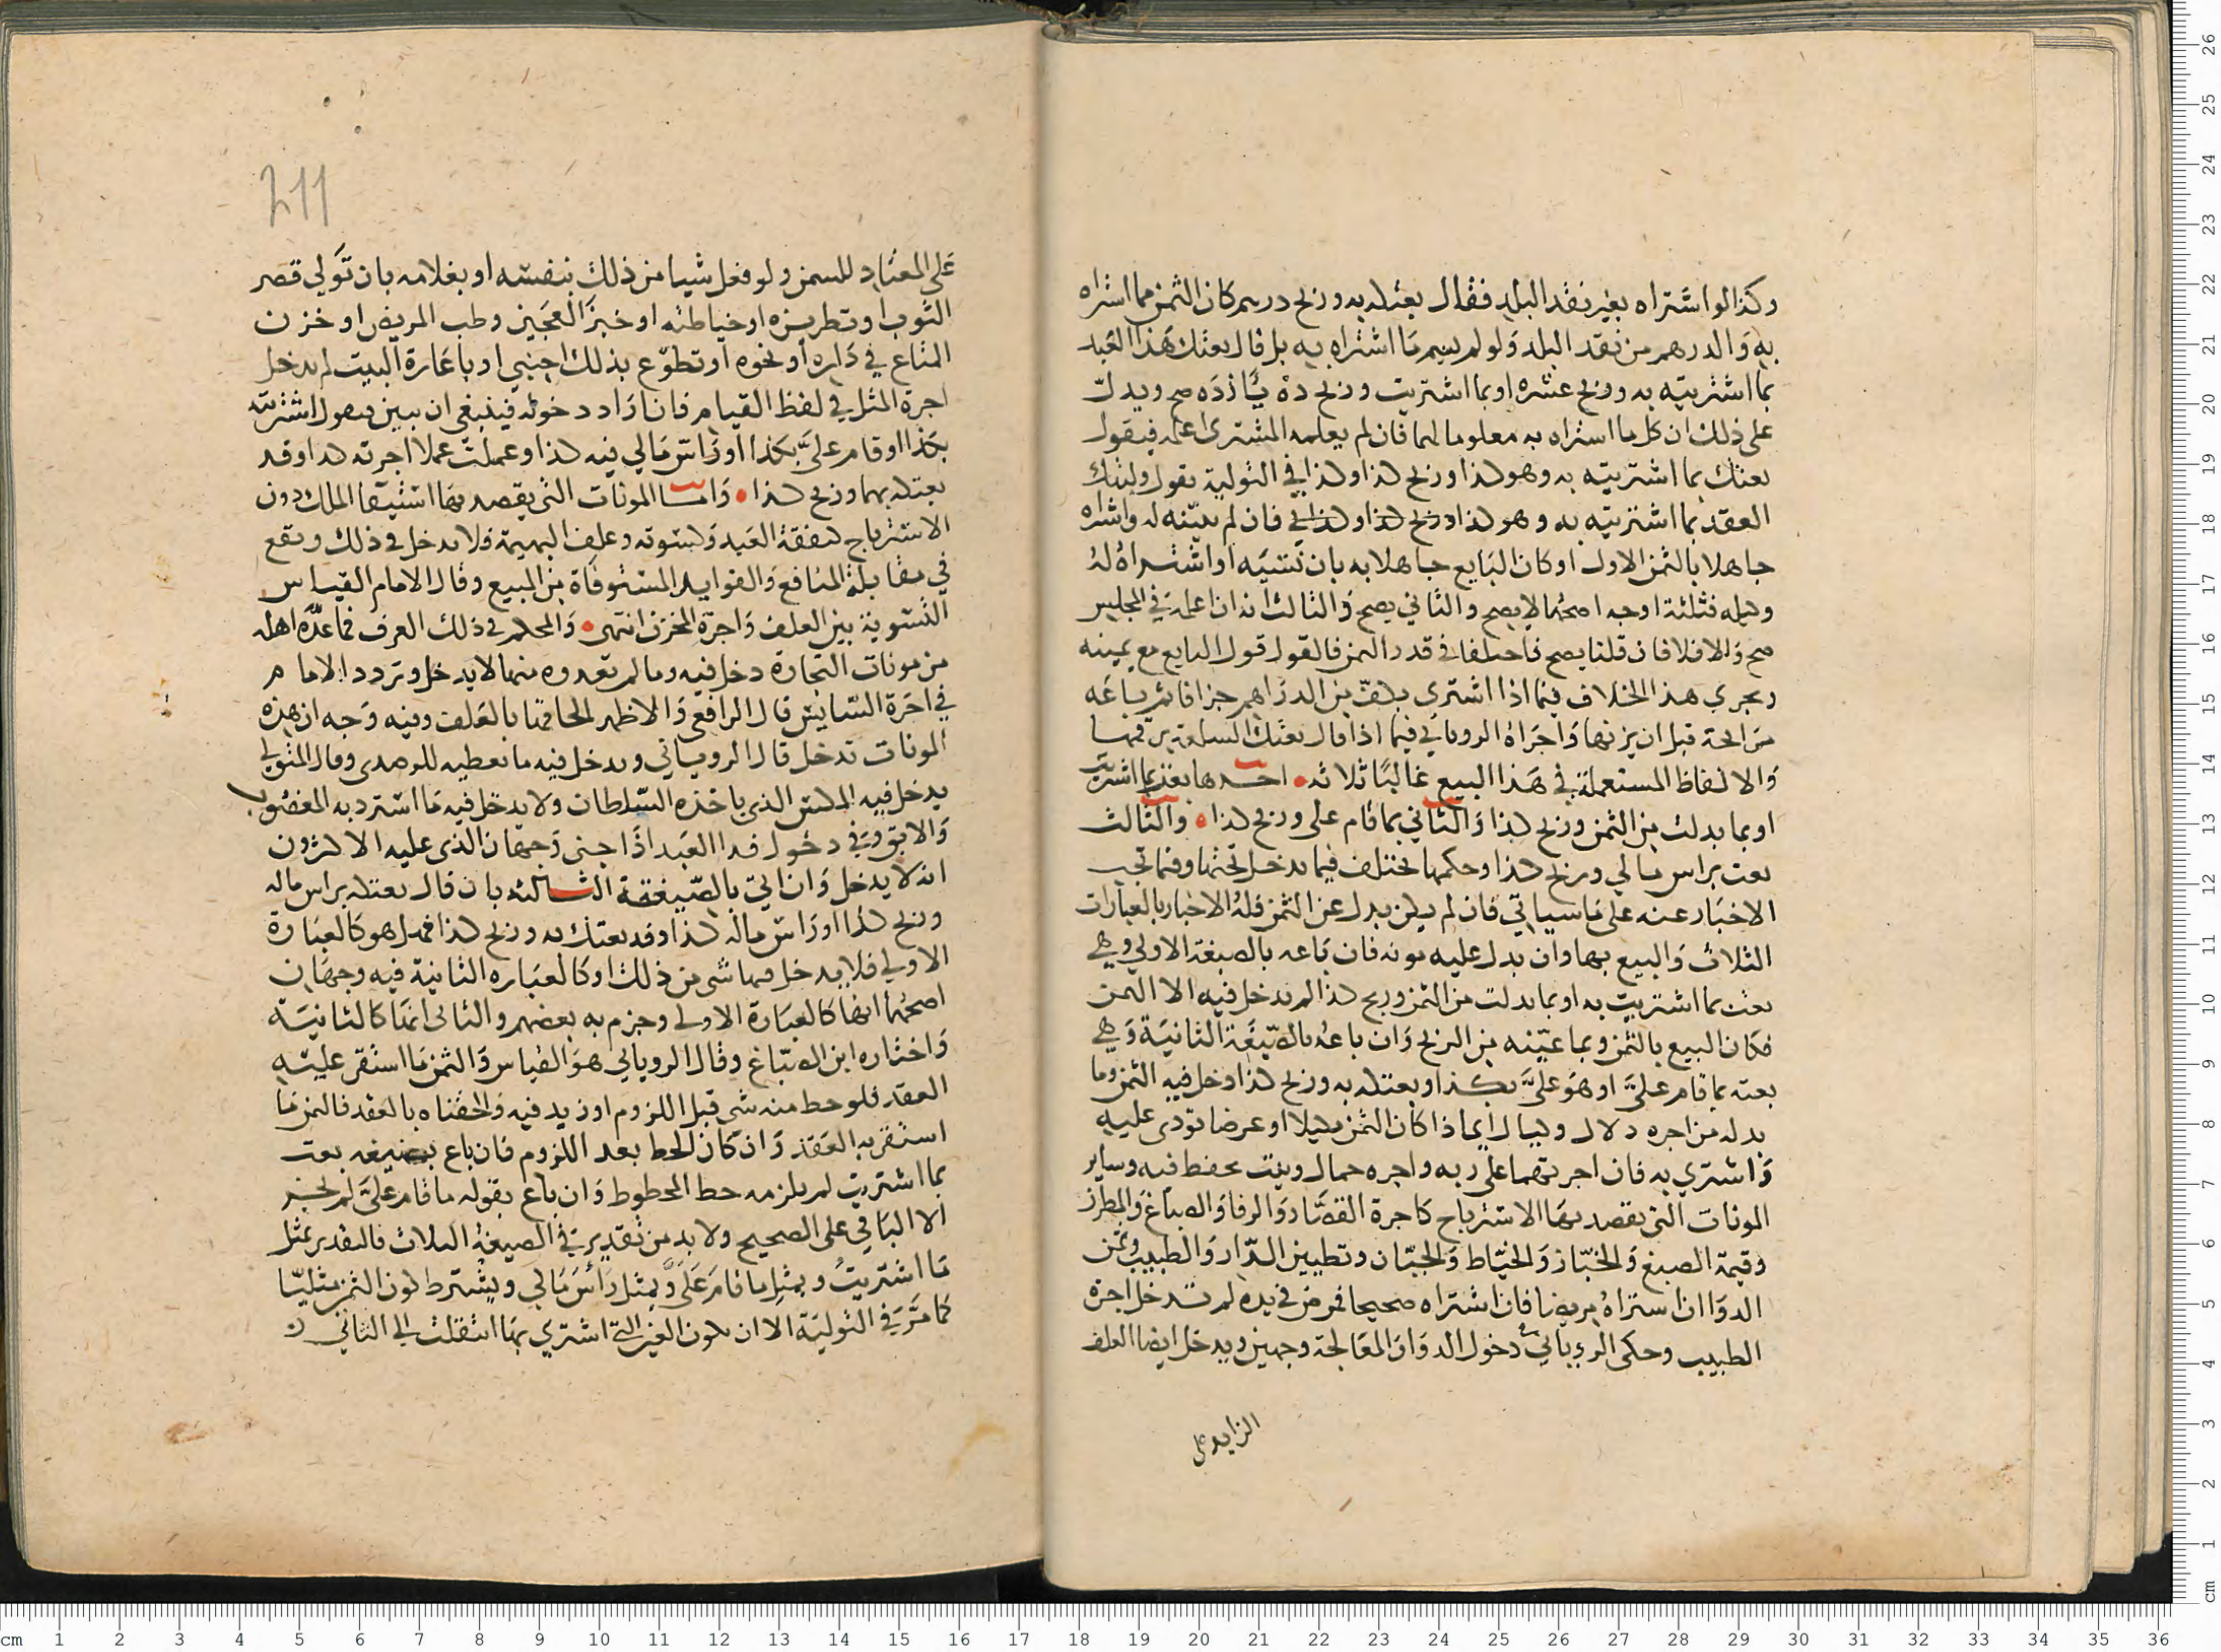 وكذا لو اشتراه بغير نقد البلد فقال بعتكه به وربح درهم كان الثمن مما اشراه
به والدرهم من نقد البلد ولو لم يسم ما اشتراه به بل قال بعتك هذا العبد
بما اشتريته به وربح عشره او بما اشتريت وربح ده يازده صح ويدل
على ذلك ان كل ما اشتراه به معلوما لهما فان لم يعلمه المشترى اعلمه فيقول
بعتك بما اشتريته به وهو كذا وربح كذا وكذا في التولية يقول وليتك
العقد بما اشتريته به وهو كذا وربح كذا وكذا فان لم يبينه له واشراه
جاهلا بالثمن الاول او كان البايع جاهلا به بان نسيه او اشتراه له
وكيله فثلثة اوجه اصحهما لا يصح والثاني يصح والثالث انه ان اعلمه في المجلس
صح والا فلا فان قلنا يصح فاختلفا في قدر الثمن فالقول قول البايع مع يمينه
ويجري هذا الخلاف فيما اذا اشترى بكف من الدراهم جزافا ثم باعه
مرابحة قبل ان يزنها واجراه الروياني فيما اذا قال بعتك السلعة برقمها
والالفاظ المستعملة في هذا البيع غالبا ثلاثه احدها بعت بما اشتريت
او بما بدلت من الثمن وربح كذا والثاني بما قام على وربح كذا والثالث
بعت براس مالي وربح كذا وحكمها يختلف فيما يدخل تحتها وفيما تجب
الاخبار عنه على ما سياتي فان لم يكن بدل عن الثمن فله الاخبار بالعبارات
الثلاث والبيع بها وان بدل عليه مونه فان باعه بالصيغة الاولى وهي
بعت بما اشتريت به او بما بدلت من الثمن وربح كذا لم يدخل فيه الا الثمن
فكان البيع بالثمن وبما عينه من الربح وان باعه بالصيغة الثانية وهي
بعته بما قام علي او هو علي بكذا وبعتكه به وربح كذا دخل فيه الثمن وما
بدله من اجره دلال وكيال ايما اذا كان الثمن مكيلا او عرضا نودى عليه
واشتري به فان اجرتهما على ربه واجره حمال وبيت يحفظ فيه وساير
المونات التي يقصد بها الاسترباح كاجرة القصار والرفا والصباغ والمطرز
وقيمة الصبغ والخباز والخياط والختان وتطيين الدار والطبيب وثمن
الدوا ان اشتراه مريضا فان اشتراه صحيحا فمرض في يده لم تدخل اجرة
الطبيب وحكى الروياني في دخول الدوا والمعالجة وجهين ويدخل ايضا العلف
الزايد على
211
على المعتاد للسمن ولو فعل شيا من ذلك بنفسه او بغلامه بان تولي قصر
الثوب او تطريزه او خياطته او خبز العجين وطب المريض او خزن
المتاع في داره او نحوه او تطوع بذلك اجنبي او باعارة البيت لم يدخل
اجرة المثل في لفظ القيام فان اراد دخوله فينبغي ان يبين فيقول اشتريته
بكذا او قام علي بكذا او راس مالي فيه كذا وعملت عملا اجرته كذا وقد
بعتكه بهما وربح كذا واما المونات التي يقصد بها استبقا الملك دون
الاسترباح كنفقة العبد وكسوته وعلف البهيمة فلا يدخل في ذلك ويقع
في مقابلة المنافع والفوايد المستوفاة من المبيع وقال الامام القياس
التسوية بين العلف واجرة المخزن انتهى والمحكم في ذلك العرف فما عده اهله
من مونات التجارة دخل فيه وما لم تعدوه منها لا يدخل وتردد الامام
في اجرة السايس قال الرافعي والاظهر الحاقها بالعلف وفيه وجه ان هذه
المونات تدخل قال الروياني ويدخل فيه ما يعطيه للرصدى وقال المتولي
يدخل فيه المكس الذي ياخذه السلطان ولا يدخل فيه ما استرد به المغصوب
والابق وفي دخول فدا العبد اذا جنى وجهان الذي عليه الاكثرون
انه لا يدخل وان اتي بالصيغة الثالثه بان قال بعتكه براس ماله
وربح كذا او راس ماله كذا وقد بعتك به وربح كذا فهل هو كالعبارة
الاولي فلا يدخل فيها شى من ذلك او كالعباره الثانية فيه وجهان
اصحهما انها كالعبارة الاولى وجزم به بعضهم والثاني انها كالثانية
واختاره ابن الصباغ وقال الروياني هو القياس والثمن ما استقر عليه
العقد فلو حط منه شي قبل اللزوم او زيد فيه والحقناه بالعقد فالثمن ما
استقر به العقد وان كان الحط بعد اللزوم فان باع بصيغه بعت
بما اشتريت لم يلزمه حط المحطوط وان باع بقوله ما قام علي لم يخبر
الا الباقي على الصحيح ولا بد من تقدير في الصيغة الثلاث فالتقدير بمثل
ما اشتريت وبمثل ما قام علي وبمثل راس مالي ويشترط كون الثمن مثليا
كما مر في التولية الا ان يكون العين التي اشتري بها انتقلت الى الثاني